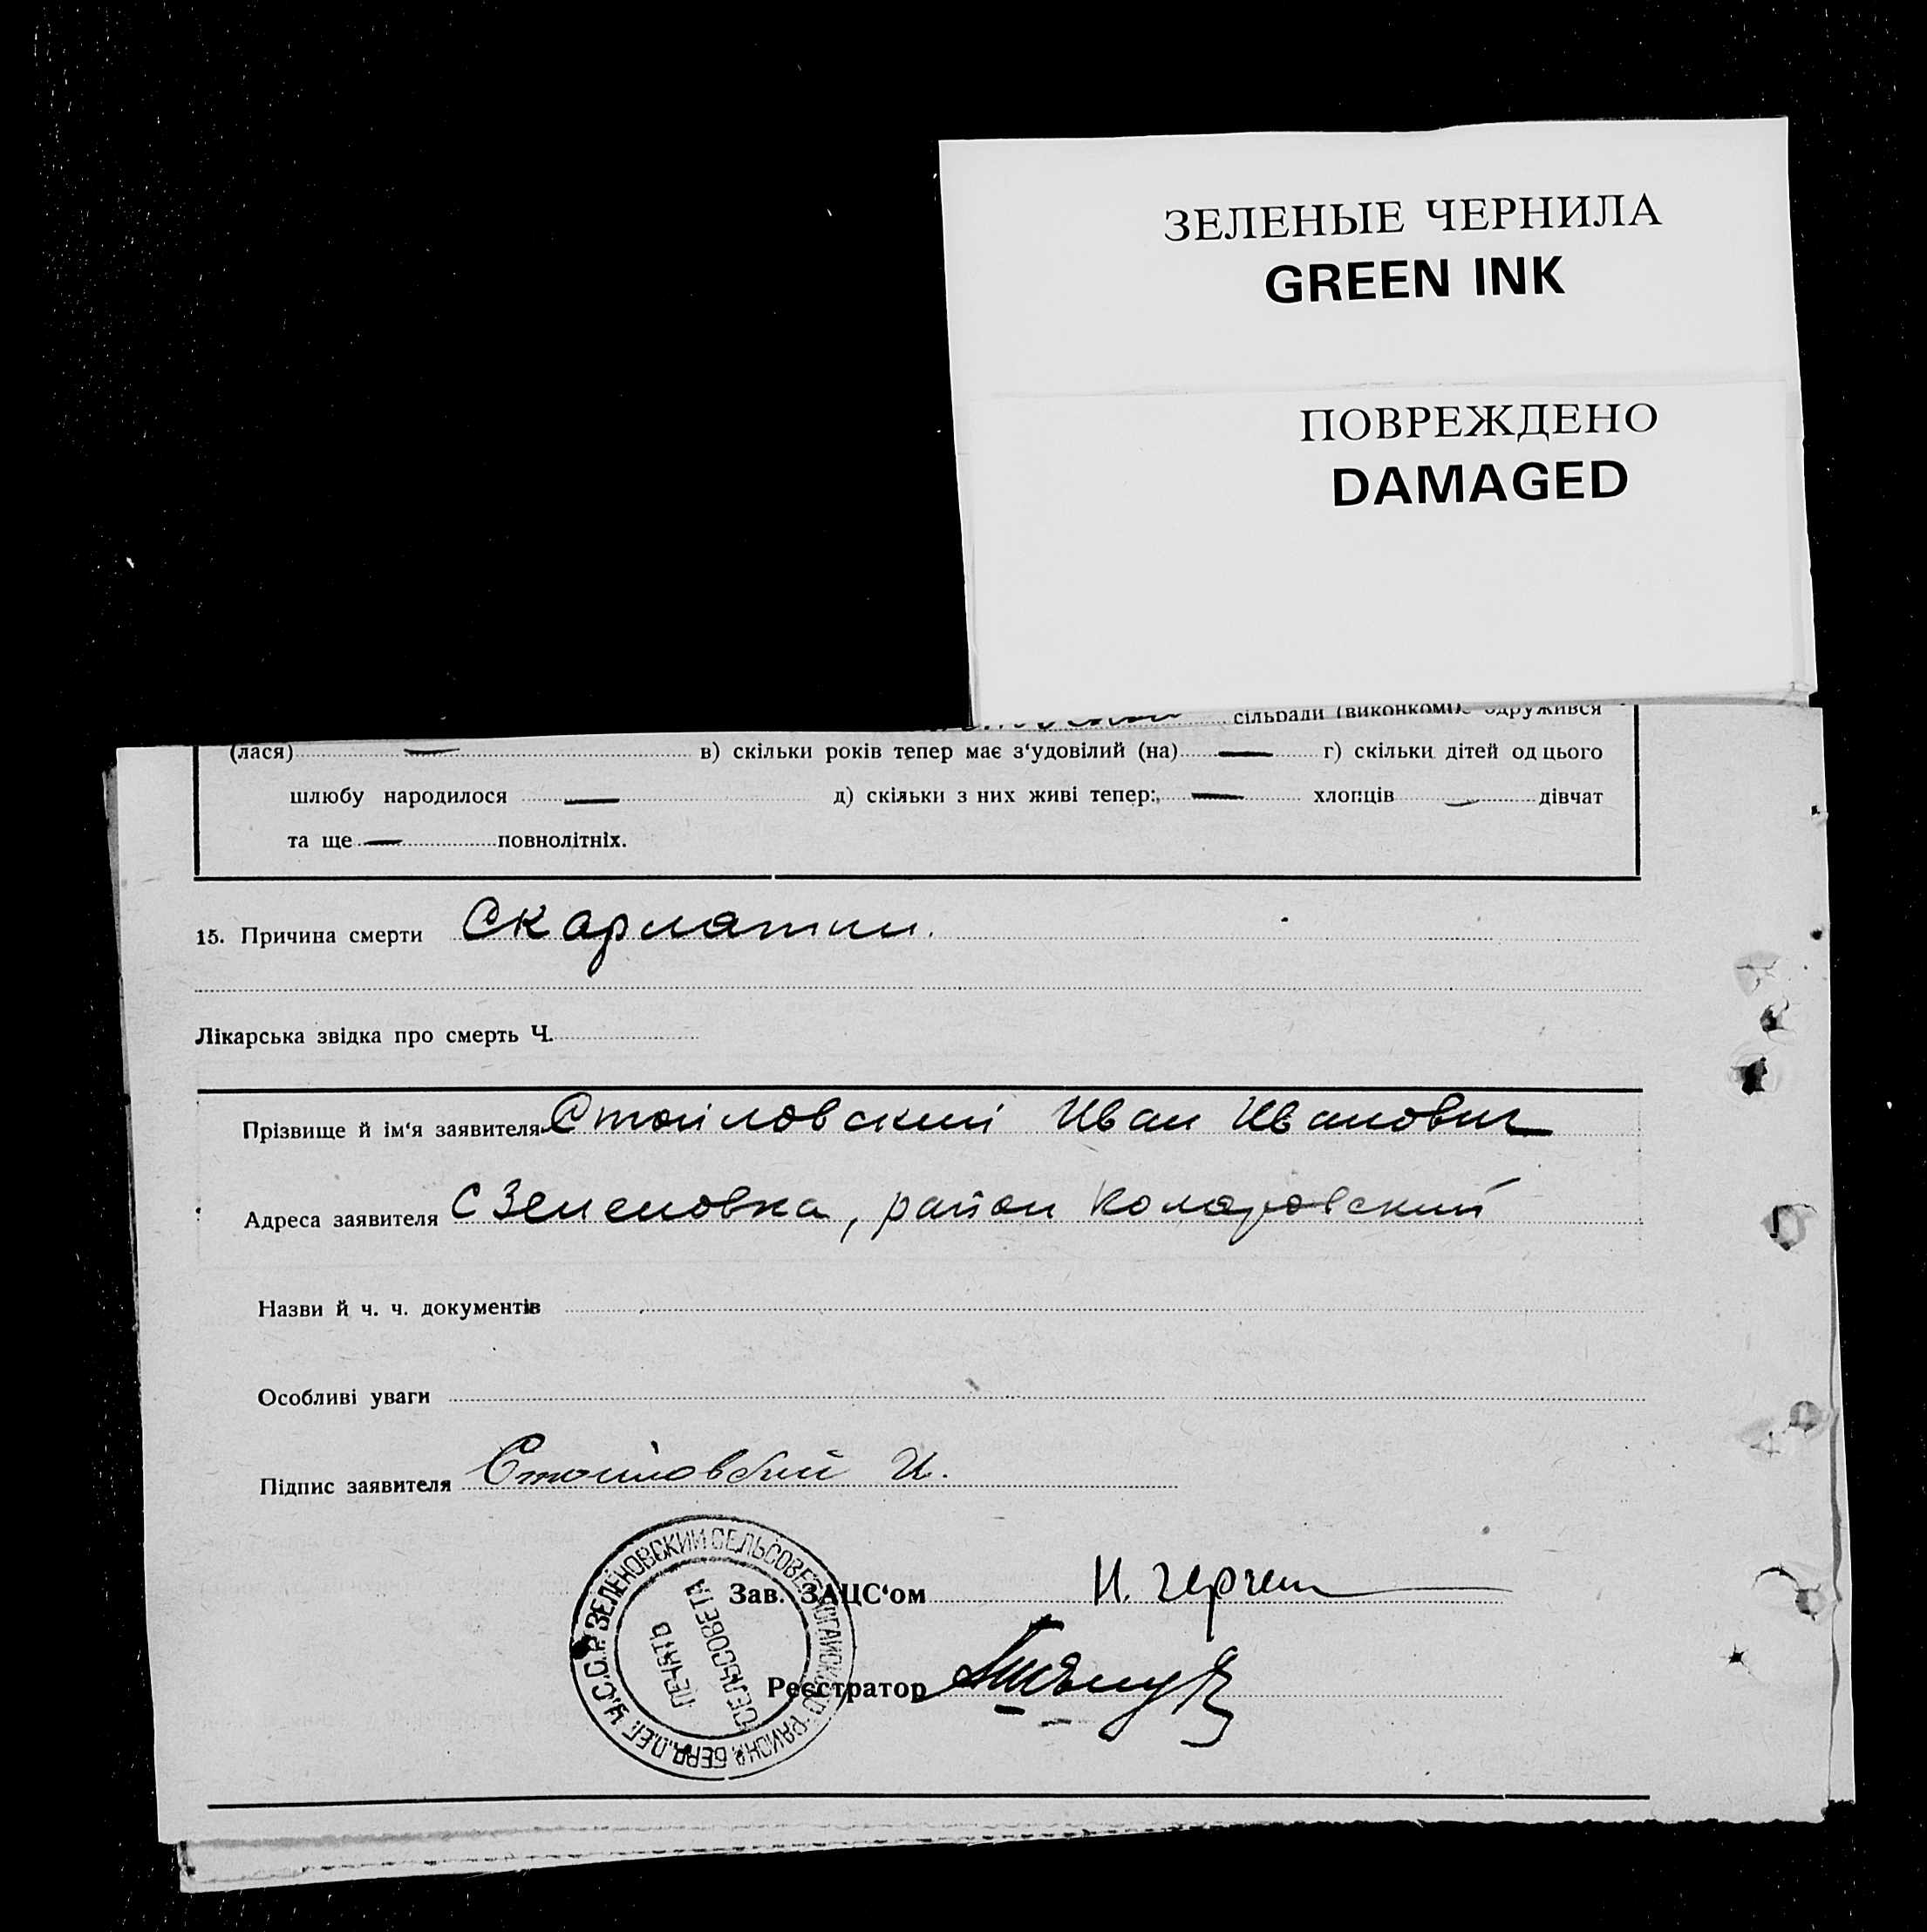 ЗЕЛЕНЫЕ ЧЕРНИЛА
GREEN INK
ПОВРЕЖДЕНО
DAMAGED
сільради (виконкому) одружився
(лася) — в) скільки років тепер має з‘удовілий (на) — г) скільки дітей од цього
шлюбу народилося — д) скільки з них живі тепер: — хлопців — дівчат
та ще — повнолітніх.
15. Причина смерти Скарлатин.
Лікарська звідка про смерть Ч.
Прізвище й ім‘я заявителя Стоиловский Иван Иванович
Адреса заявителя с Зеленовка, район Коларовский
Назви й ч. ч. документів
Особливі уваги
Підпис заявителя Стоиловский И.
Зав. ЗАЦС‘ом
Реєстратор
ЗЕЛЕНОВСКИЙ СЕЛЬСОВЕТ РАЙОНА У.С.С.Р.
ПЕЧАТЬ
СЕЛЬСОВЕТА